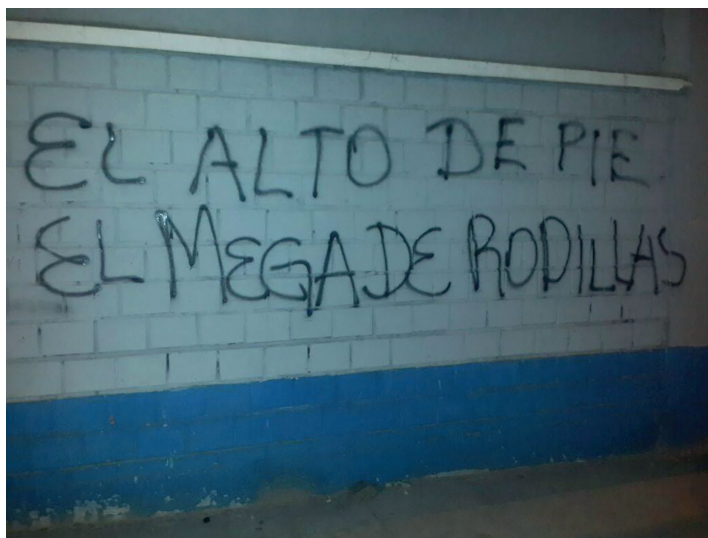 EL ALTO DE PIE
EL MEGA DE RODILLAS